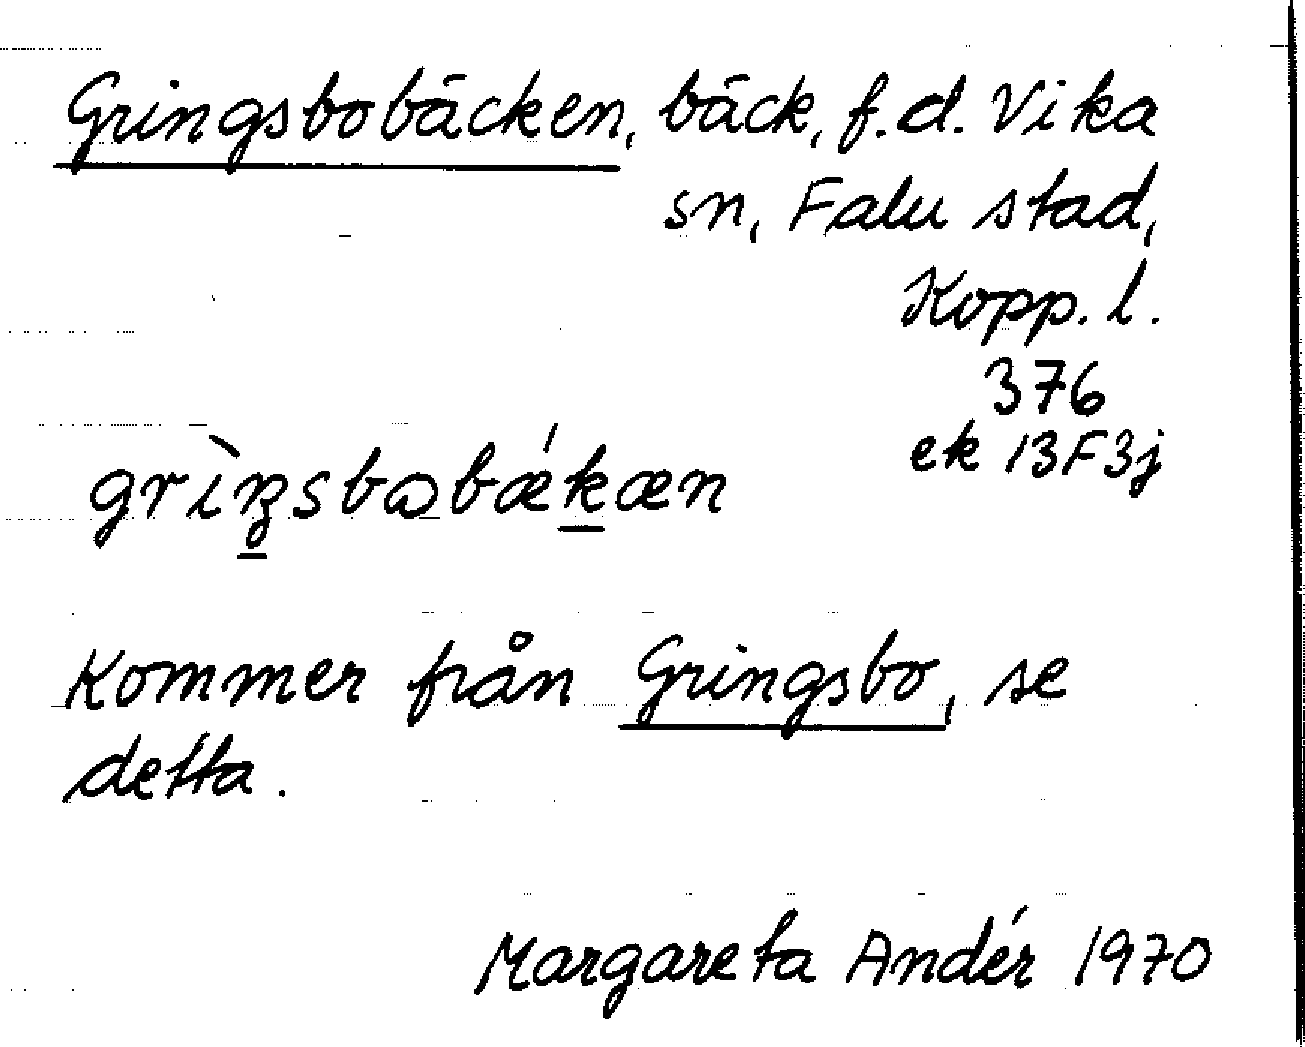 Gringsbobäcken, bäck, f.d. Vika
sn, Falu stad,
Kopp. l.
376
ek 13F3j
grìŋsbobǽkæn
Kommer från Gringsbo, se
detta.
Margareta Andér 1970